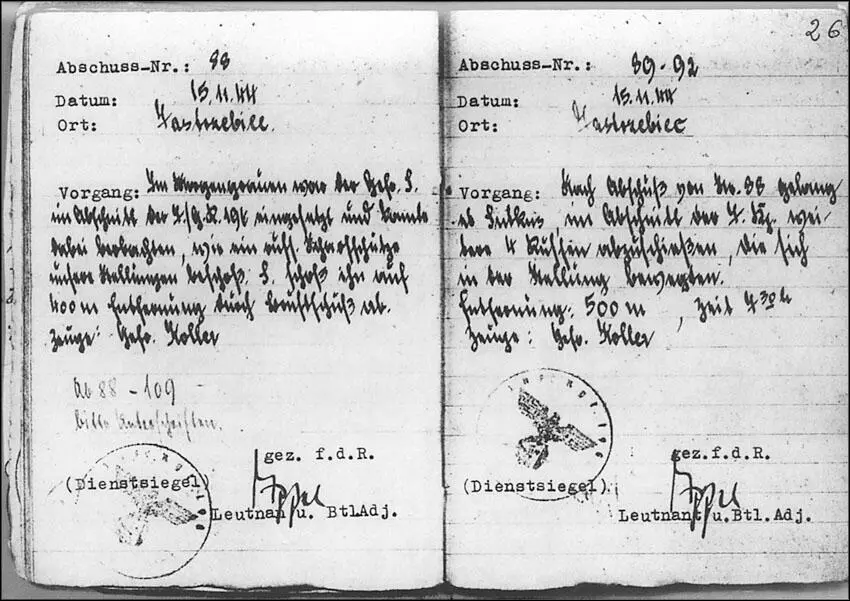 26
Abschuss-Nr.: 88
Datum: 15.11.44
Ort: Jastrzebiec.
Vorgang: Im Morgengrauen war der Gefr. S.
im Abschnitt der 7./G.R. 196 eingesetzt und konnte
dabei beobachten, wie ein russ. Scharfschütze
unsere Stellungen beschoß. S. schoß ihn auf
400 m Entfernung durch Brustschuß ab.
Zeuge: Gefr. Koller
Ab 88 - 109 -
bitte Unterschriften.
gez. f.d.R.
(Dienstsiegel)
Leutnant u. Btl.Adj.
Abschuss-Nr.: 89-92
Datum: 15.11.44
Ort: Jastrzebiec
Vorgang: Nach Abschuß von Nr. 88 gelang
es Sutkus, im Abschnitt der 7. Kp. wei-
tere 4 Russen abzuschießen, die sich
in der Stellung bewegten.
Entfernung: 500 m, Zeit 7 30 h
Zeuge: Gefr. Koller
gez. f.d.R.
(Dienstsiegel)
Leutnant u.Btl.Adj.